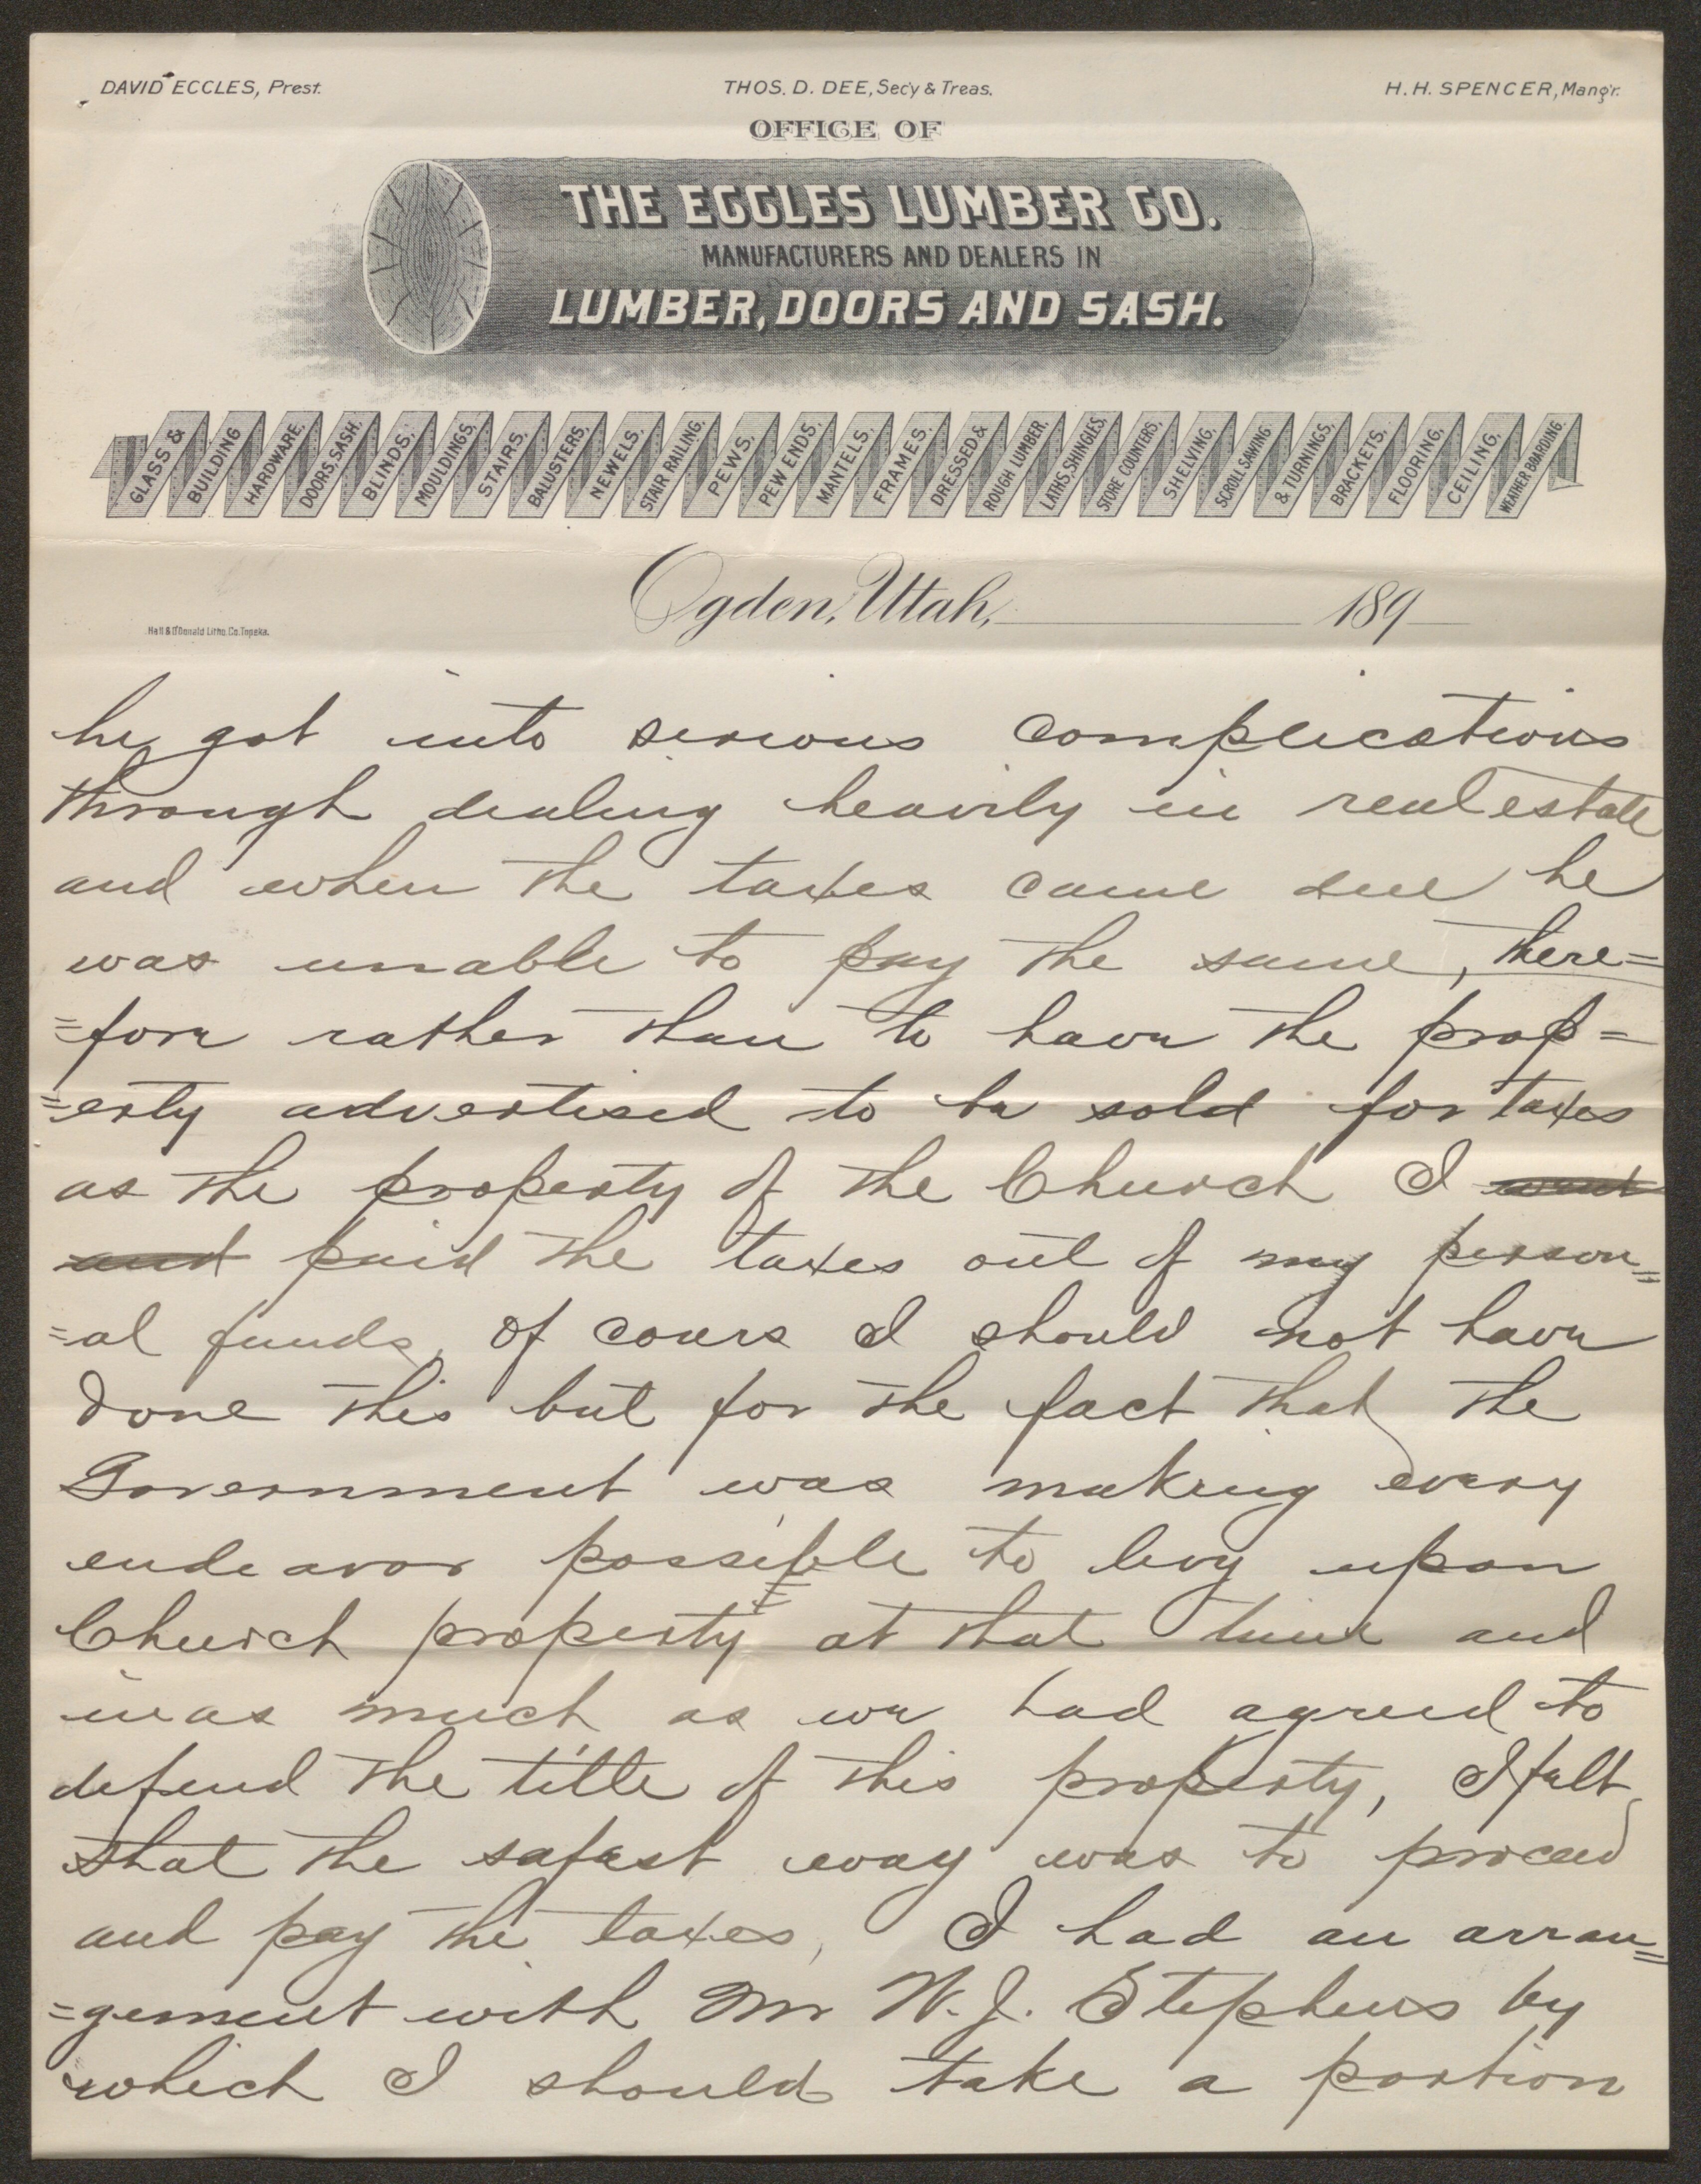 DAVID ECCLES, Prest. THOS. D. DEE, Sec'y & Treas. H. H. SPENCER, Mang'r.
OFFICE OF
THE ECCLES LUMBER CO.
MANUFACTURERS AND DEALERS IN
LUMBER, DOORS AND SASH.
GLASS & BUILDING HARDWARE, DOORS, SASH, BLINDS, MOULDINGS, STAIRS, BALUSTERS, NEWELS, STAIR RAILING, PEWS, PEW ENDS, MANTELS, FRAMES, DRESSED & ROUGH LUMBER, LATHS, SHINGLES, STORE COUNTERS, SHELVING, SCROLL SAWING & TURNINGS, BRACKETS, FLOORING, CEILING, WEATHER BOARDING.
Ogden, Utah, 189
Hall & O'Donald Litho. Co. Topeka.
he got into serious complications
through dealing heavily in real estate
and when the taxes came due he
was unable to pay the same, there=
=fore rather than to have the prop=
=erty advertised to be sold for taxes
as the property of the Church I went
and paid the taxes out of my person=
=al funds, of cours I should not have
done this but for the fact that the
Government was making every
endeavor possible to levy upon
Church property at that time and
inas much as we had agreed to
defend the title of this property, I felt
that the safest way was to proceed
and pay the taxes, I had an arran=
=gement with Mr W. J. Stephens by
which I should take a portion